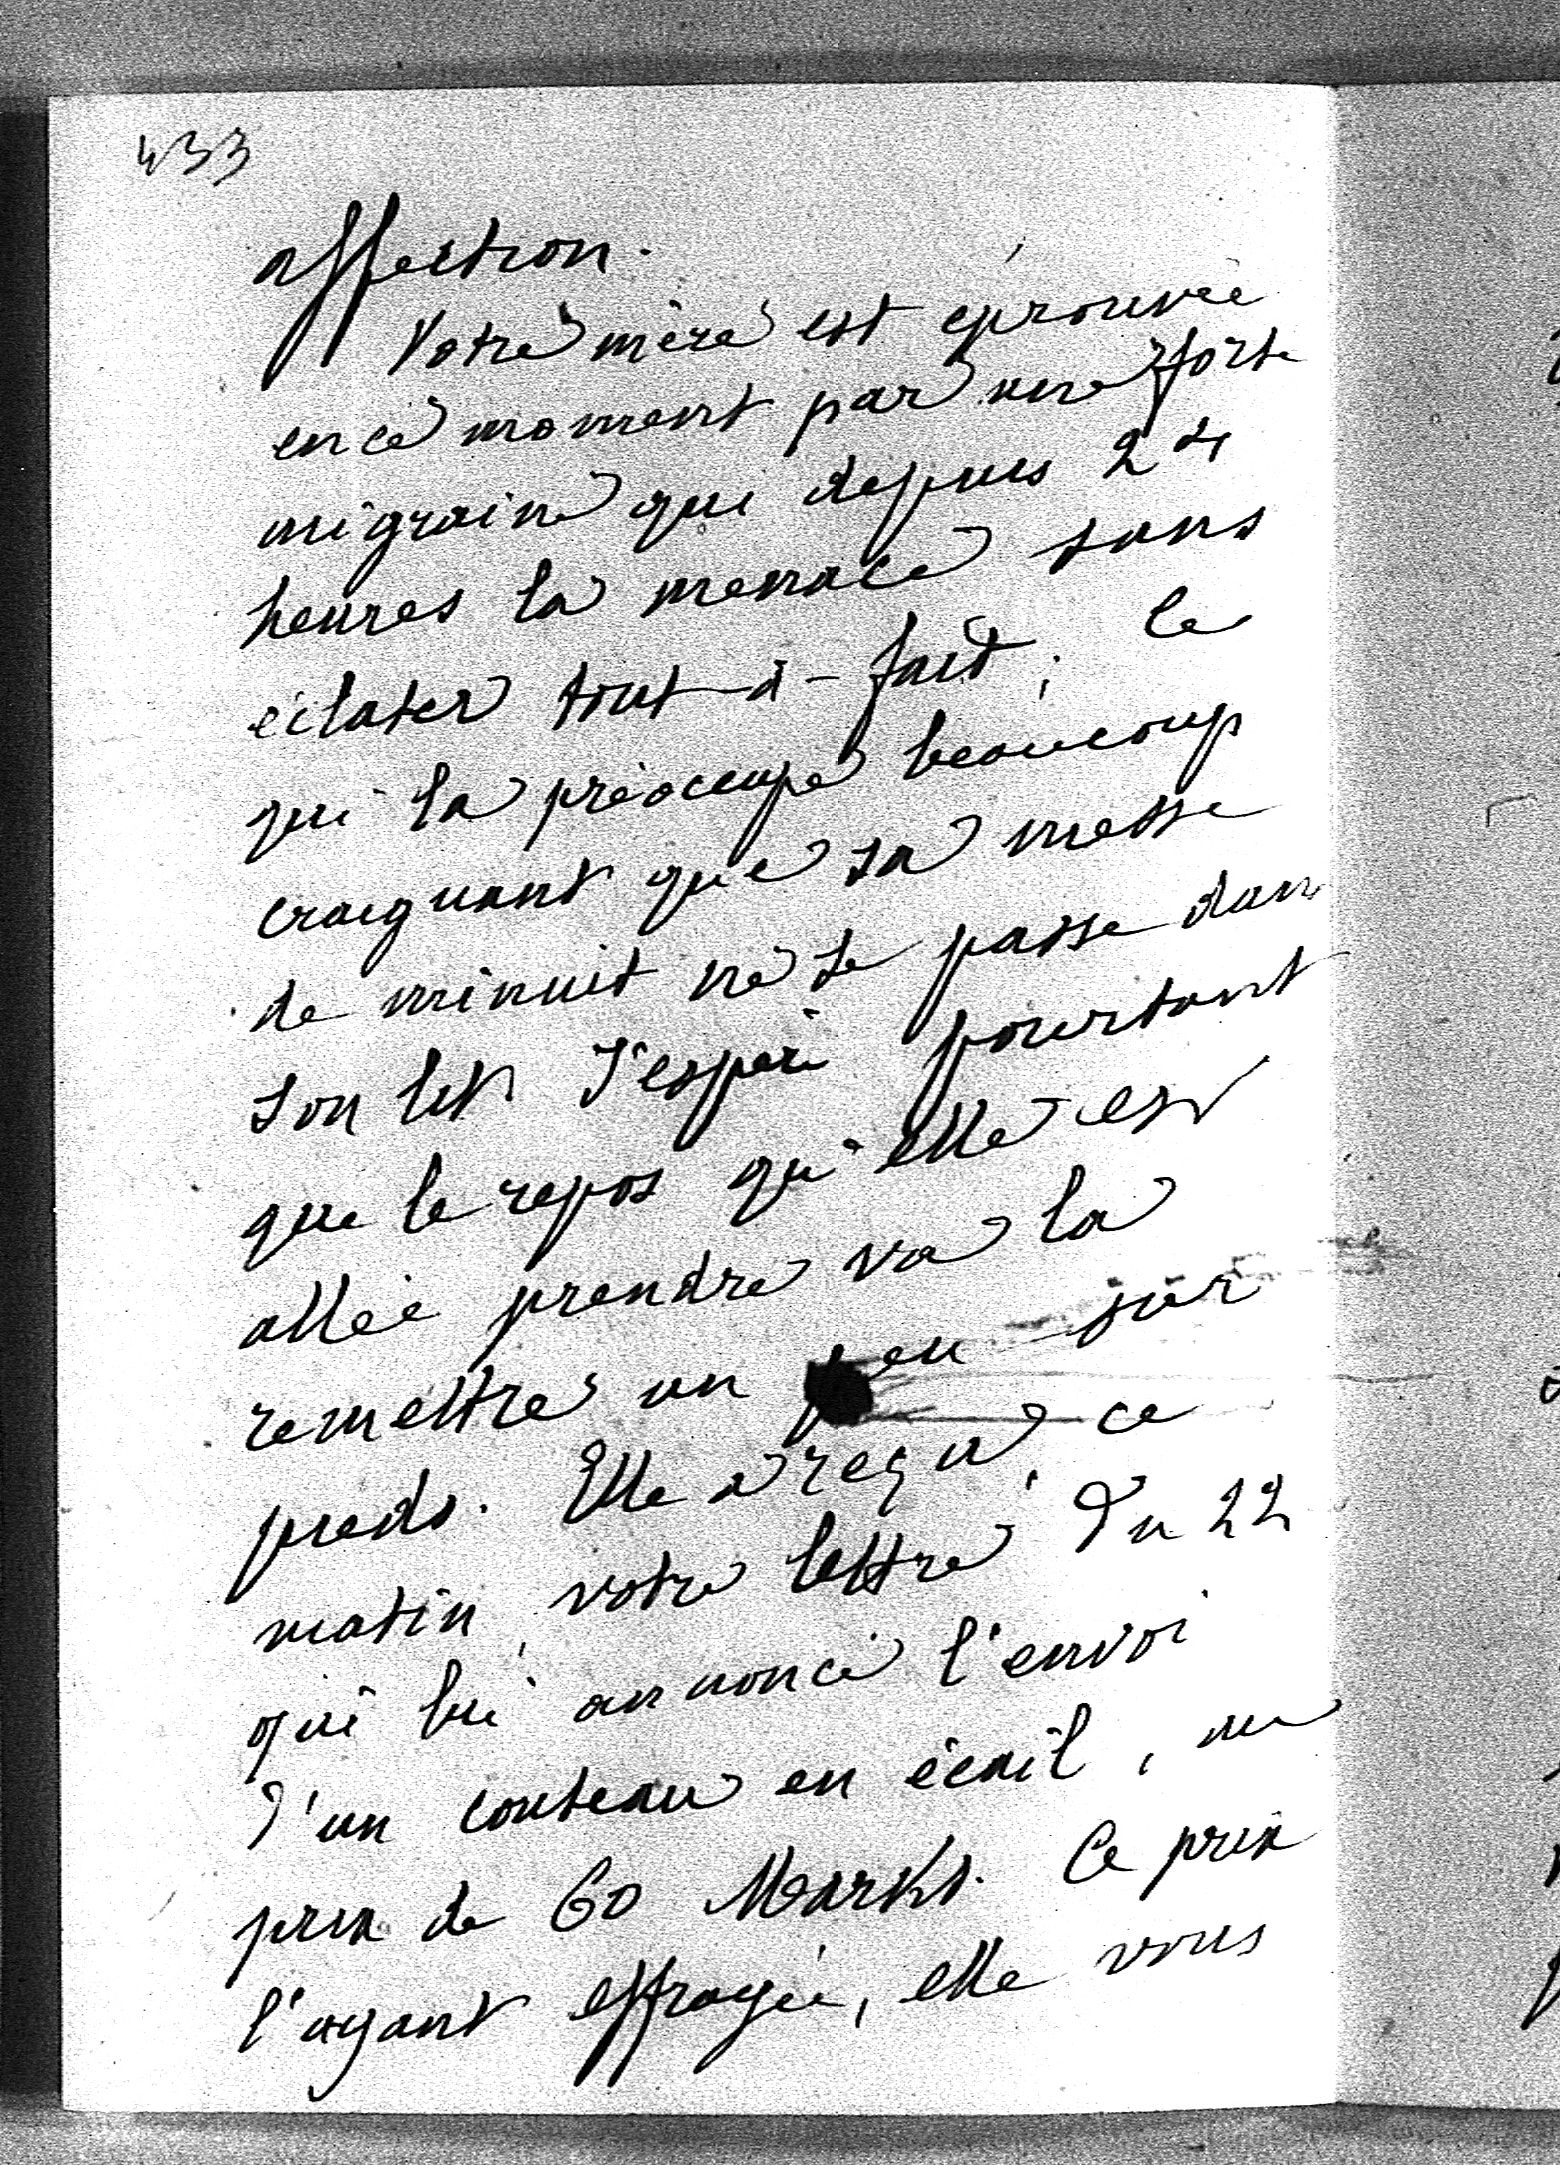 433
affection.
Votre mère est éprouvée
en ce moment par une forte
migraine qui depuis 24
heures la menace sans
éclater tout-à-fait; ce
qui la préoccupe beaucoup
craignant que sa messe
de minuit ne se passe dans
son lit. J'espère pourtant
que le repos qu'elle est
allée prendre va la
remettre un peu sur
pieds. Elle a reçu, ce
matin, votre lettre du 22
qui lui annonce l'envoi
d'un couteau en écail, au
prix de 60 Marks. Ce prix
l'ayant effrayée, elle vous